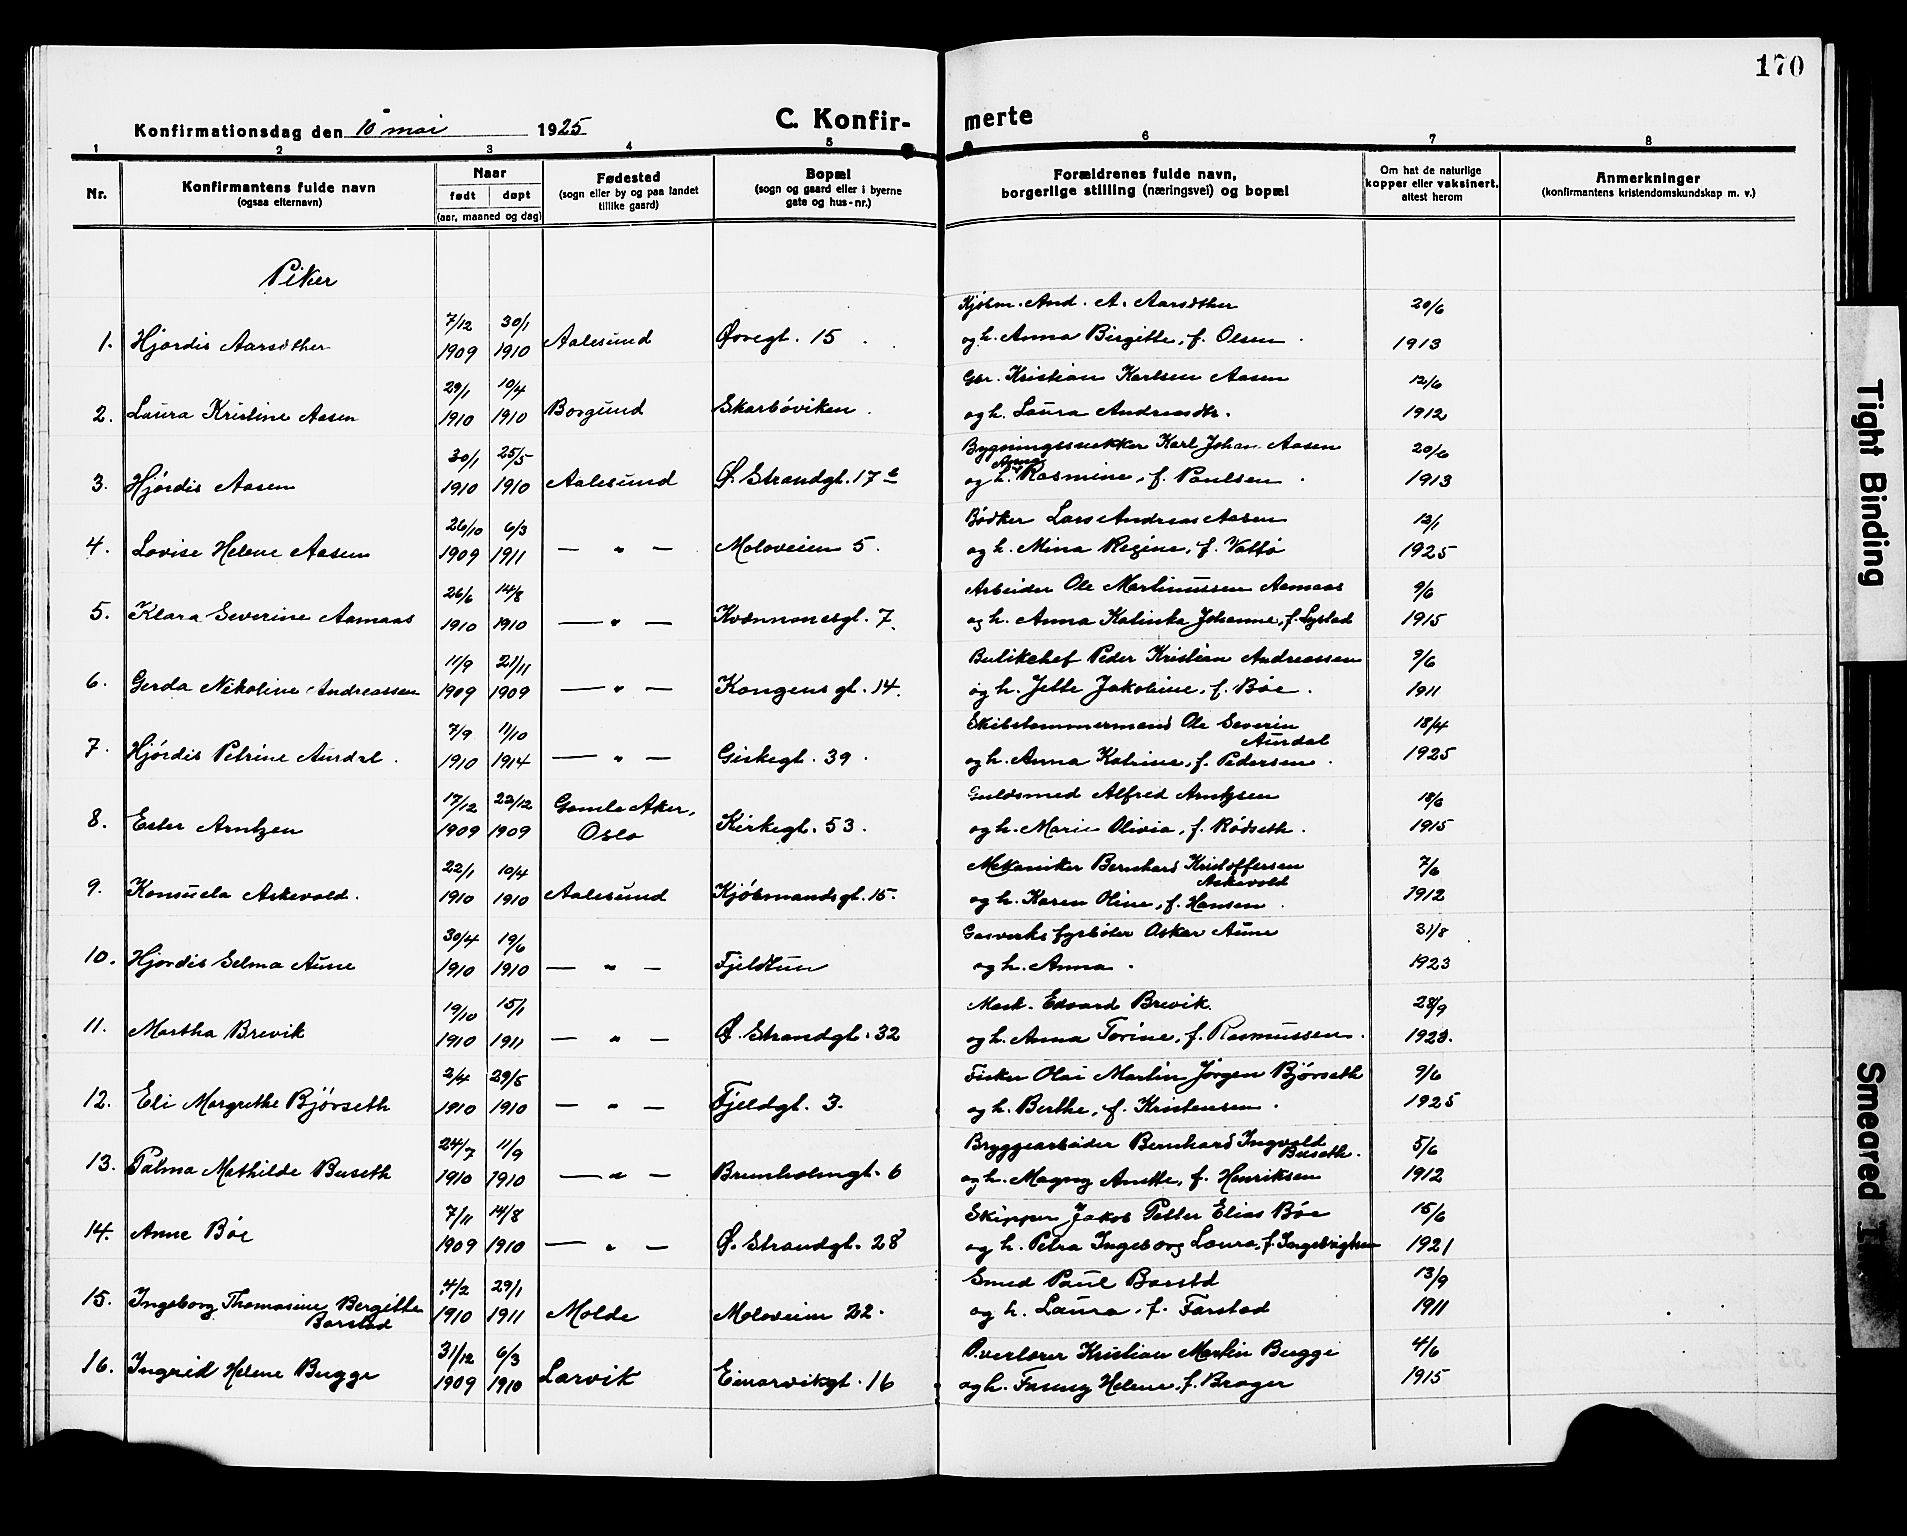 170
Konfirmationsdag den 10 mai 1925 C. Konfirmerte
1 2 3 4 5 6 7 8
Nr. Konfirmantens fulde navn (ogsaa efternavn) Naar født døpt (aar, maaned og dag) Fødested (sogn eller by og paa landet tillike gaard) Bopæl (sogn og gaard eller i byerne gate og hus-nr.) Forældrenes fulde navn, borgerlige stilling (næringsvei) og bopæl Om hat de naturlige kopper eller vaksinert, attest herom Anmerkninger (konfirmantens kristendomskundskap m. v.)
Piker
7/12 30/1 Kjøbm. And. A. Aarsæther 20/6
1. Hjørdis Aarsæther 1909 1910 Aalesund Øvregt. 15 og h. Anna Birgitte, f. Olsen 1913
29/1 10/4 Gbr. Kristian Karlsen Aasen 12/6
2. Laura Kristine Aasen 1910 1910 Borgund Skarbøviken og h. Laura Andreasdtr. 1912
30/1 25/5 Bygningssnekker Karl Johan Aasen 20/6
3. Hjørdis Aasen 1910 1910 Aalesund Ø. Strandgt. 17 b og h. Anna Rasmine, f. Paulsen 1913
26/10 6/3 Bødker Lars Andreas Aasen 12/1
4. Lovise Helene Aasen 1909 1911 — " — Moloveien 5. og h. Mina Regine, f. Vattø 1925
26/6 14/8 Arbeider Ole Martinussen Aamaas 9/6
5. Klara Severine Aamaas 1910 1910 — " — Kvennanesgt. 7. og h. Anna Katinka Johanne, f. Lystad 1915
11/9 21/11 Butikchef Peder Kristian Andreassen 9/6
6. Gerda Nikoline Andreassen 1909 1909 — " — Kongensgt. 14. og h. Jette Jakobine, f. Bøe. 1911
7/9 11/10 Skibstømmermand Ole Severin Aurdal 18/4
7. Hjørdis Petrine Aurdal. 1910 1914 — " — Giskegt. 39. og h. Anna Katrine, f. Pedersen. 1925
17/12 22/12 Gamle Aker, Guldsmed Alfred Arntzen 18/6
8. Ester Arntzen 1909 1909 Oslo Kirkegt. 53. og h. Marie Olivia, f. Rødseth. 1915
22/1 10/4 Mekaniker Bernhard Kristoffersen Askevold 7/6
9. Konsuela Askevold. 1910 1910 Aalesund Kjøbmandsgt. 15. og h. Karen Oline, f. Hansen. 1912
30/4 19/6 Gasverksfyrbøter Oskar Aune 31/8
10. Hjørdis Selma Aune 1910 1910 — " — Fjeldtun og h. Anna. 1923
19/10 15/1 Mask. Edvard Brevik. 28/9
11. Martha Brevik 1910 1911 — " — Ø. Strandgt. 32 og h. Anna Torine, f. Rasmussen. 1923.
2/4 29/5 Fisker Olai Martin Jørgen Bjørseth 9/6
12. Eli Margrethe Bjørseth 1910 1910 — " — Fjeldgt. 3. og h. Berthe, f. Kristensen. 1925
24/7 11/9 Bryggearbeider Bernhard Ingvald Buseth. 5/6
13. Palma Mathilde Buseth 1910 1910 — " — Brunholmgt. 6 og h. Magny Anette, f. Henriksen 1912
7/11 14/8 Skipper Jakob Petter Elias Bøe 15/6
14. Anne Bøe 1909 1910 — " — Ø. Strandgt. 28 og h. Petra Ingeborg Laura, f. Ingebrigtsen 1921
4/2 29/1 Smed Paul Barstad 13/9
15. Ingeborg Thomasine Bergitte Barstad 1910 1911 Molde Moloveien 22. og h. Laura, f. Farstad 1911
31/12 6/3 Overlærer Kristian Martin Bugge 4/6
16. Ingrid Helene Bugge 1909 1910 Larvik Einarvikgt. 16 og h. Fanny Helene, f. Brager 1915
Tight Binding
Smeared